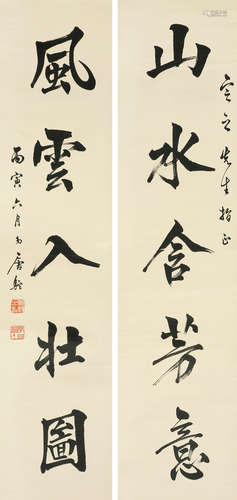 山水含芳意
之先生指正
風雲入壯圖
丙寅六月